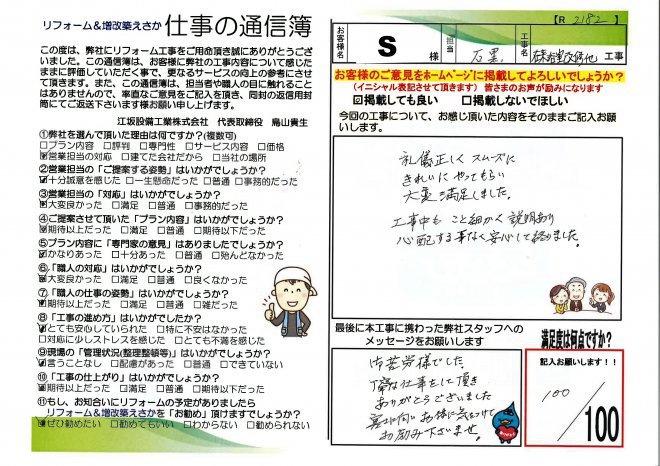 リフォーム&増改築えさか 仕事の通信簿
この度は、弊社にリフォーム工事をご用命頂き誠にありがとうござ
いました。この通信簿は、お客様に弊社の工事内容について感じた
ままに評価していただく事で、更なるサービスの向上の参考にさせ
て頂きます。また、この通信簿は、担当者や職人の目に触れること
はありませんので、率直なご意見をご記入を頂き、同封の返信用封
筒にてご返送下さいます様お願い申し上げます。
江坂設備工業株式会社 代表取締役 鳥山貴生
①弊社を選んで頂いた理由は何ですか?(複数可)
□プラン内容 □評判 □専門性 □サービス内容 □価格
☑営業担当の対応 □建てた会社だから □当社の場所
②営業担当の「ご提案する姿勢」はいかがでしょうか?
☑十分誠意を感じた □一生懸命だった □普通 □事務的だった
③営業担当の「対応」はいかがでしょうか?
☑大変良かった □満足 □普通 □事務的だった
④ご提案させて頂いた「プラン内容」はいかがでしょうか?
☑期待以上だった □満足 □普通 □期待以下だった
⑤プラン内容に「専門家の意見」はありましたでしょうか?
☑かなりあった □十分あった □普通 □殆んどなかった
⑥「職人の対応」はいかがでしょうか?
☑大変良かった □満足 □普通 □良くなかった
⑦「職人の仕事の姿勢」はいかがでしょうか?
☑期待以上だった □満足 □普通 □雑だった
⑧「工事の進め方」はいかがでしたか?
☑とても安心していられた □特に不安はなかった
□対応に少しストレスを感じた □とても不満を感じた
⑨現場の「管理状況(整理整頓等)」はいかがでしょうか?
☑言うことなし □配慮があった □普通 □できていない
⑩「工事の仕上がり」はいかがでしょうか?
☑期待以上だった □満足 □普通 □期待以下だった
⑪もし、お知合いにリフォームの予定がありましたら
リフォーム&増改築えさかを「お勧め」頂けますでしょうか?
☑ぜひ勧めたい □勧めてもいい □わからない □勧められない
【R 2182 】
お客様名 S 様 担当 石黒 工事名 工事
お客様のご意見をホームページに掲載してよろしいでしょうか?
(イニシャル表記させて頂きます) 皆さまのお声が励みになります
☑掲載しても良い □掲載しないでほしい
今回の工事について、お感じ頂いた内容をそのままご記入お願
いします。
礼儀正しく スムーズに
きれいに やってもらい
大変満足しました。
工事中も こと細かく 説明あり
心配する事なく安心して終りました。
最後に本工事に携わった弊社スタッフへの
メッセージをお願いします
御苦労様でした
丁寧な仕事をして頂き
ありがとうございました
お体に気をつけて
お励み下さいませ。
満足度は何点ですか?
記入お願いします!!
100
/100